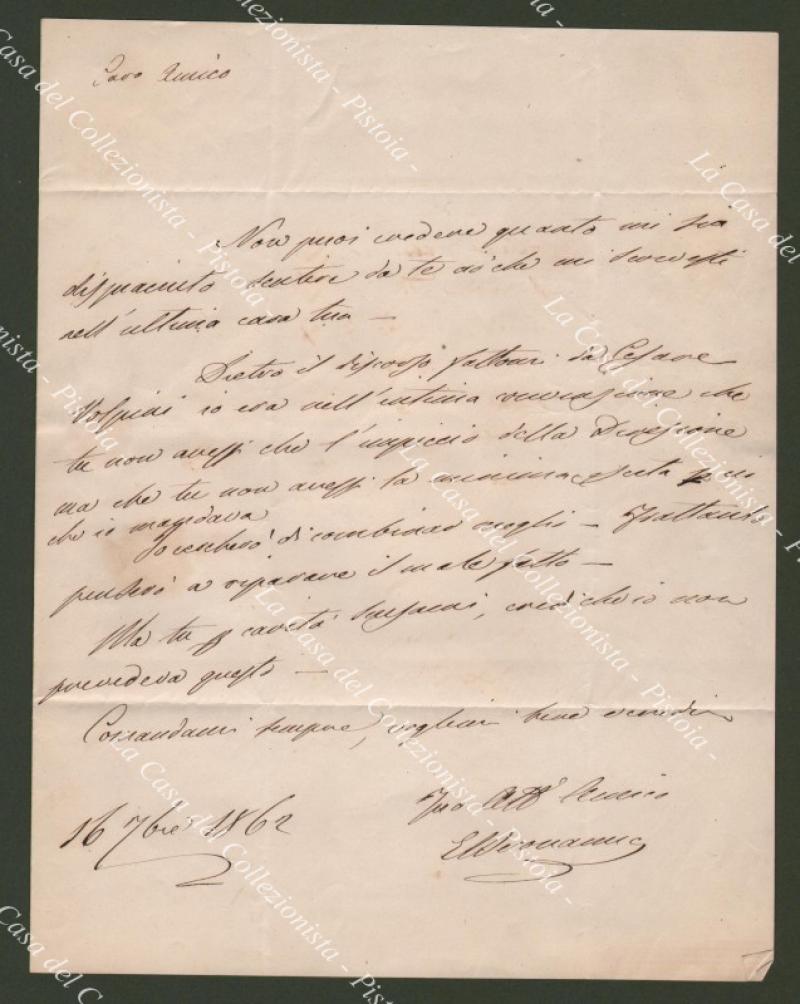 Caro Amico
Non puoi credere quanto mi sia
dispiaciuto sentire da te ciò che mi scrivesti
nell'ultima cara tua —
Dietro il discorso fattomi da Cesare
Volpini io era nell'intima convinzione che
tu non avessi che l'impiccio della Direzione
ma che tu non avessi la minima
che io mandava
Io cercherò di combinar meglio — Frattanto
penserò a riparare il mal fatto —
Ma tu carità scusami, credi che io non
prevedeva questo —
Comandami sempre, vogliami bene e credimi
Tuo Aff° Amico
16 7bre 1862
La Casa del Collezionista - Pistoia -